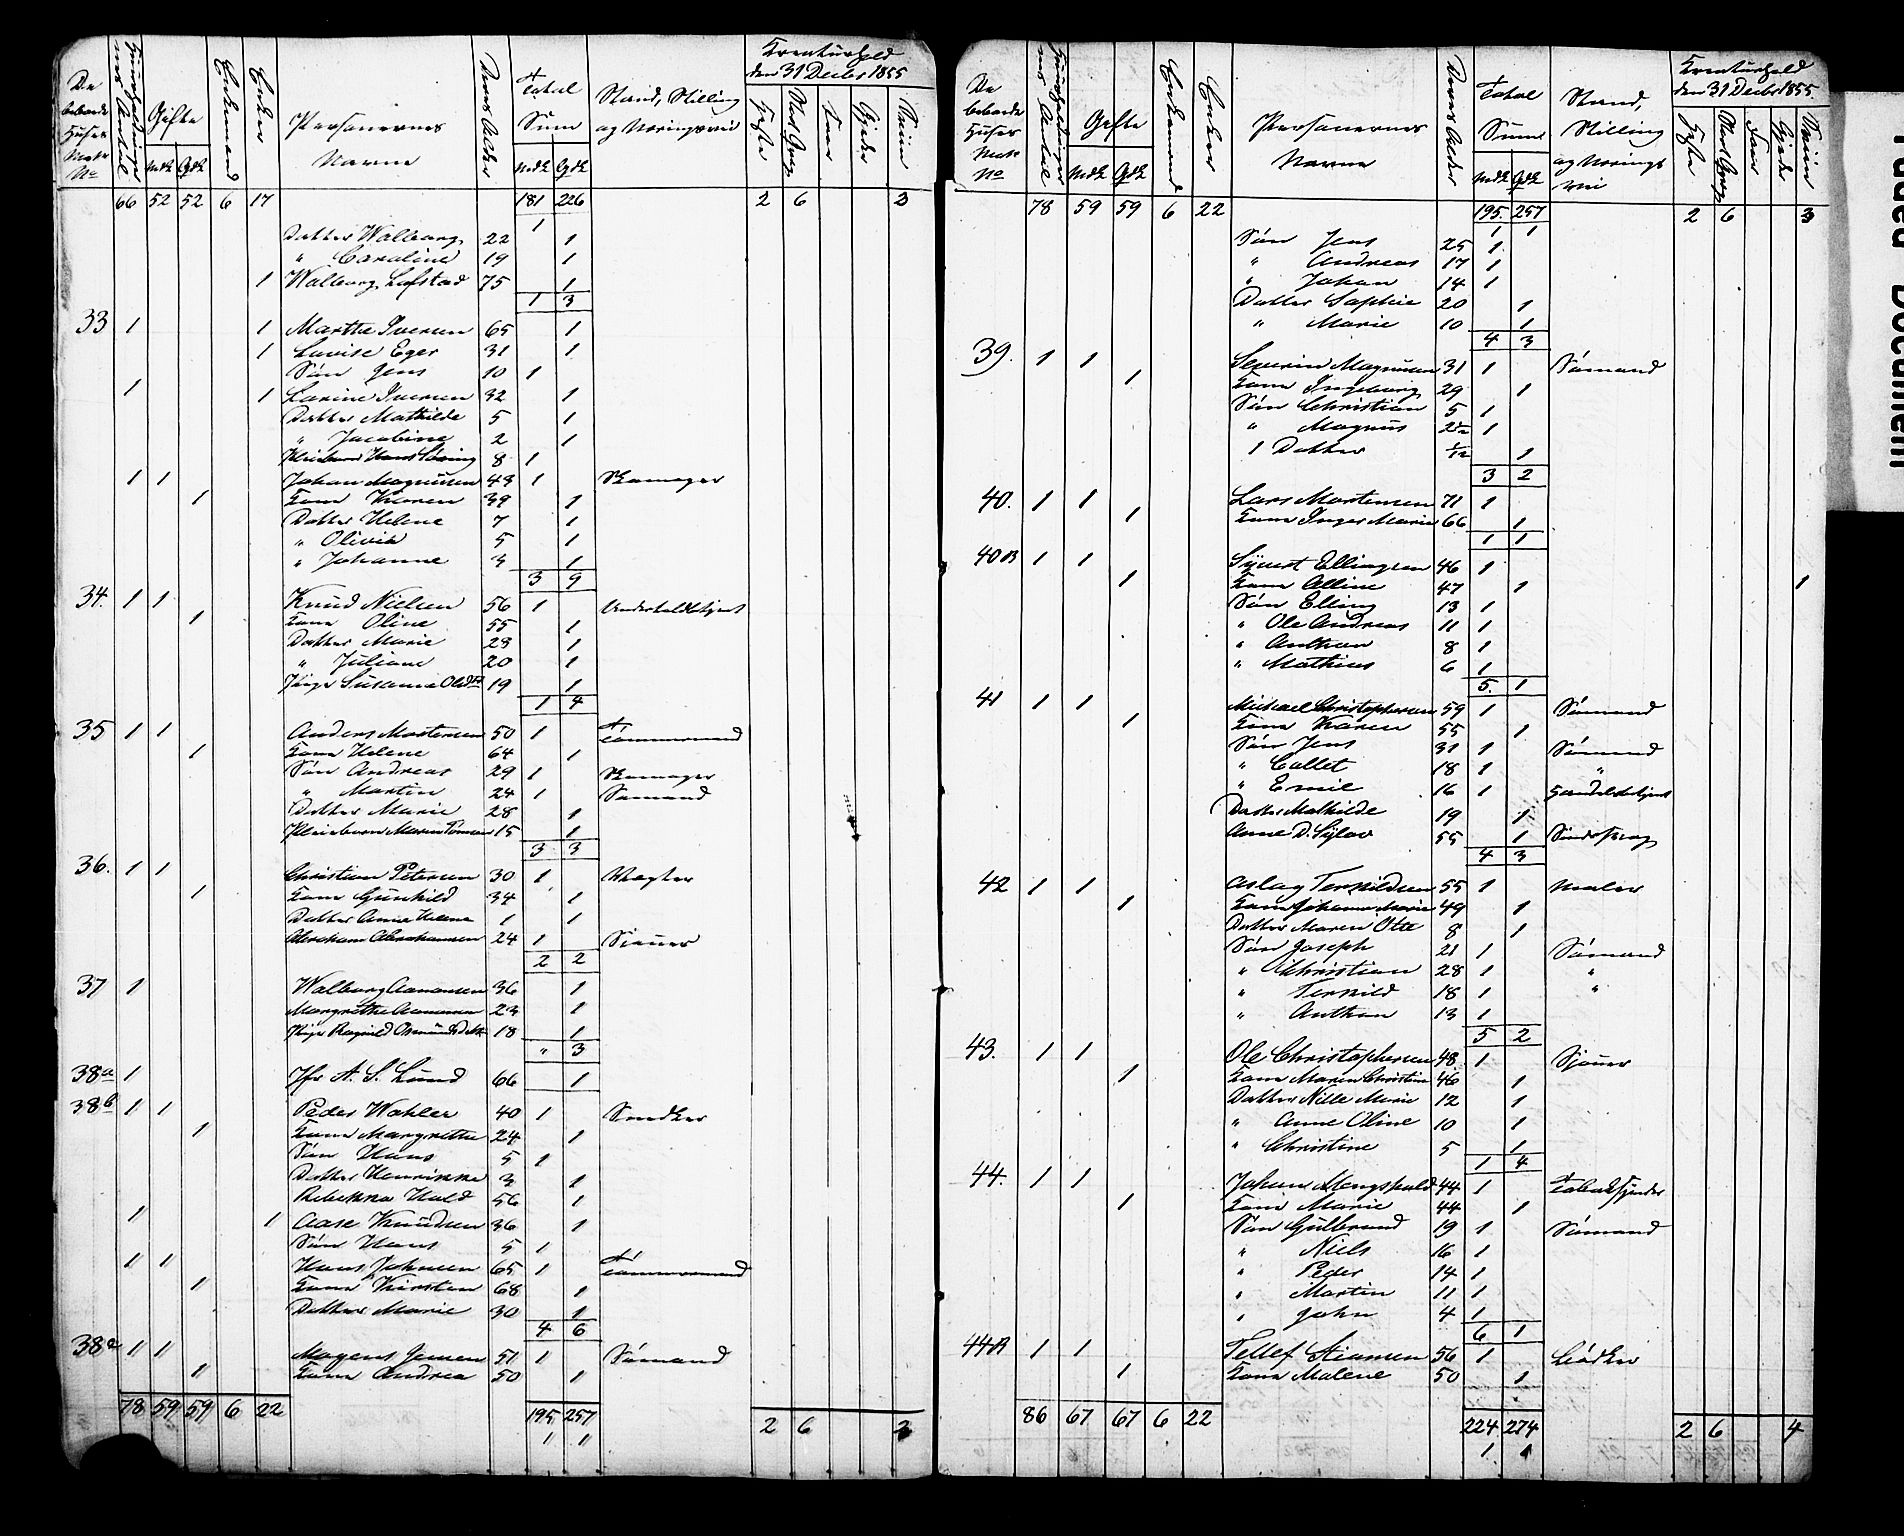 De beboede Huses Matr No | Huusholdninger nes Antal | Gifte Mdk Qdk | Enkemænd | Enker | Personernes Navne | Deres Alder | Total Sum Mdk Qdk | Stand, Stilling og Næringsvei | Kreaturhold den 31 Decbr 1855 Heste
66 52 52 6 17 181 226 2 6 3
1
Datter Walborg 22 1
" Caroline 19 1
1 Walborg Lofstad 75 1
1 3
33 1 1 Marthe Iversen 65 1
1 Lovise Eger 31 1
Søn Jens 10 1
1 1 Larine Iversen 32 1
Datter Mathilde 5 1
" Jacobine 2 1
Pleiebarn Hans 8 1
1 1 Johan Magnusen 43 1
1 Kone Karen 39 1
Datter Helene 7 1
" Olivia 5 1
" Johanne 3 1
3 9
34. 1 1 Knud Nielsen 56 1
1 Kone Oline 55 1
Datter Marie 23 1
" Juliane 20 1
Pige Susanne 19 1
1 4
35 1 1 Anders Mortensen 50 1 Tømmermand
1 Kone Helene 64 1
Søn Andreas 29 1
" Martin 24 1 Sømand
Datter Marie 28 1
Pleiebarn Maren 15 1
3 3
36. 1 1 Christian Petersen 30 1 Vægter
1 Kone Gunhild 34 1
Datter Anne Helene 1 1
Abraham Abrahamsen 24 1 Sjouer
2 2
37 1 Walborg Aanonsen 36 1
Margrethe Aanonsen 23 1
Pige Ragnild Osmundsdtr 18 1
" 3
38a 1 Jfr A. S. Lund 66 1
38b 1 1 Peder Wahler 40 1 Snedker
1 Kone Margrethe 24 1
Søn Hans 5 1
Datter Henrikke 3 1
Rebekka Hald 56 1
1 1 Aase Knudsen 36 1
Søn Hans 5 1
1 1 Hans Johnsen 65 1 Tømmermand
1 Kone Kirsten 68 1
Datter Marie 30 1
4 6
38a 1 1 Mogens Jensen 51 1 Sømand
1 Kone Andrea 50 1
78 59 59 6 22 195 257 2 6 3
1 1
De beboede Huses Matr No | Huusholdninger nes Antal | Gifte Mdk Qdk | Enkemænd | Enker | Personernes Navne | Deres Alder | Total Sum Mdk Qdk | Stand, Stilling og Næringsvei | Kreaturhold den 31 Decbr 1855. Heste
78 59 59 6 22 195. 257 2 6 3
1 1
Søn Jens 25 1
" Andreas 17 1
" Johan 14 1
Datter Sophie 20 1
" Marie 10 1
4 3
39. 1 1 Severin Magnusen 31 1 Sømand
1 Kone Ingeborg 29 1
Søn Christian 5 1
" Magnus 2½ 1
1 Datter 1/12 1
3 2
40. 1 1 Lars Mortensen 71 1
1 Kone Inger Marie 66 1
1 1
40B 1 1 Syvert Ellingsen 46 1
1 Kone Alline 47 1 1
Søn Elling 13 1
" Ole Andreas 11 1
" Anthon 8 1
" Mathias 6 1
5. 1
41 1 1 Michael Christophersen 59 1 Sømand
1 Kone Karen 55 1
Søn Jens 31 1 Sømand
" Collet 18 1 "
" Emil 16 1
Datter Mathilde 19 1
Anne D. Sylow 55 1
4 3
42 1 1 Aslag Terkildsen 55 1 Maler
1 Kone Johanne Marie 49 1
Datter Maren Otte 8 1
Søn Joseph 21 1 Sømand
" Christian 28 1 "
" Terkild 18 1 "
" Anthon 13 1
5 2
43. 1 1 Ole Christophersen 48. 1 Sjouer
1 Kone Maren Christine 46 1
Datter Nille Marie 12 1
" Anne Oline 10 1
" Christine 5 1
1 4
44. 1 1 Johan Mengshold 44 1
1 Kone Marie 44 1
Søn Gulbrand 19 1 Sømand
" Niels 16 1
" Peder 14 1
" Martin 11 1
" John 4 1
6 1
44A 1 1 Tellef Stiansen 56 1 Bødker
1 Kone Malene 50 1
86 67 67 6 22 224 274 2 6 4
1 1
Faded Document